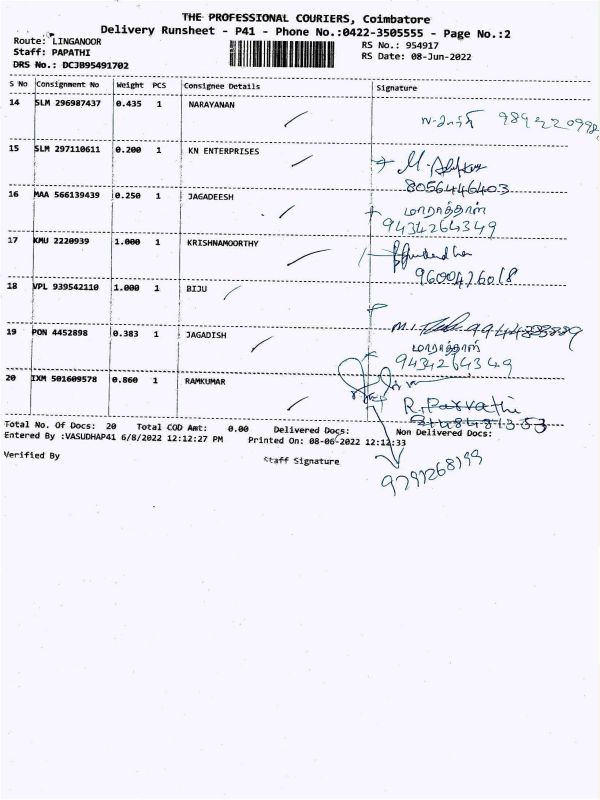 THE PROFESSIONAL COURIERS, Coimbatore
Delivery Runsheet - P41 - Phone No.:0422-3505555 - Page No.:2
Route: LINGANOOR
RS No.: 954917
Staff: PAPATHI
RS Date: 08-Jun-2022
DRS No.: DCJB95491702
S No Consignment No Weight PCS Consignee Details Signature
14 SLM 296987437 0.435 1 NARAYANAN
15 SLM 297110611 0.200 1 KN ENTERPRISES
8056446403
16 MAA 566139439 0.250 1 JAGADEESH
9434264349
17 KMU 2220939 1.000 1 KRISHNAMOORTHY
9600426018
18 VPL 939542110 1.000 1 BIJU
19 PON 4452898 0.383 1 JAGADISH
9434264349
20 IXM 501609578 0.860 1 RAMKUMAR
R. Parvathi
Total No. Of Docs: 20 Total COD Amt: 0.00 Delivered Docs: Non Delivered Docs:
Entered By :VASUDHAP41 6/8/2022 12:12:27 PM Printed On: 08-06-2022 12:12:33
Verified By Staff Signature
9791268199